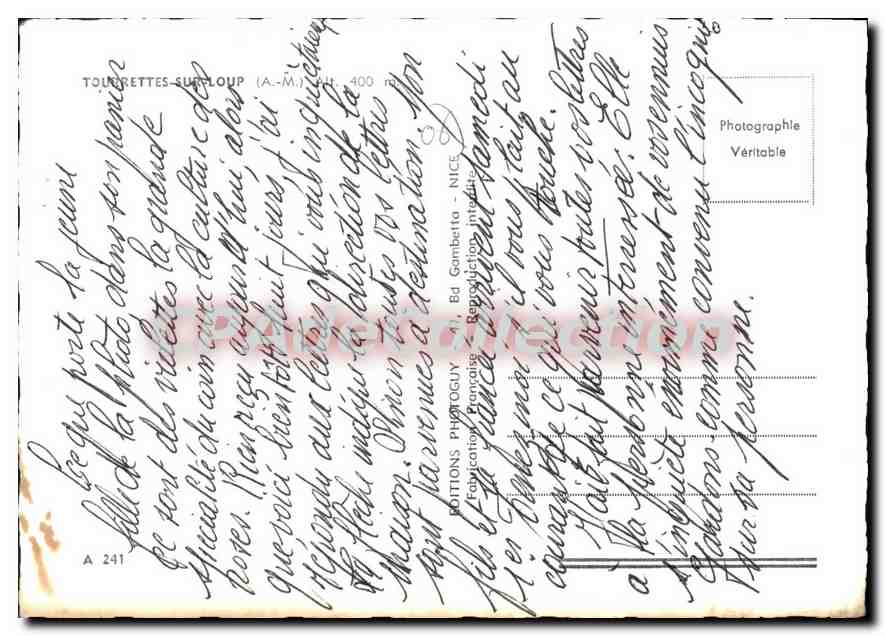 TOURRETTES-SUR-LOUP (A.-M.) Alt. 400 m.
06
Photographie
Véritable
EDITIONS PHOTOGUY - 41, Bd Gambetta - NICE
Fabrication Française - Reproduction interdite
A 241
CPArteCollection
Ce que porte la jeune
fille de la photo dans son panier
ce sont des violettes la grande
spécialité du coin avec la culture des
roses. Rien reçu aujourd'hui alors
que voici bientôt huit jours j'ai
répondu aux lettres qui vous inquiétaient
La flèche indique la direction de la
maison. Sinon toutes vos lettres
sont parvenues à destination. Mon
fils et sa fiancée arrivent samedi
Yves Devermin s'il vous fait au
courant de ce qui vous touche.
Mais fait parvenir toutes vos lettres
à la personne intéressée. Elle
s'inquiète énormément de vos ennuis
Gardons comme convenu l'incognito
sur sa personne.